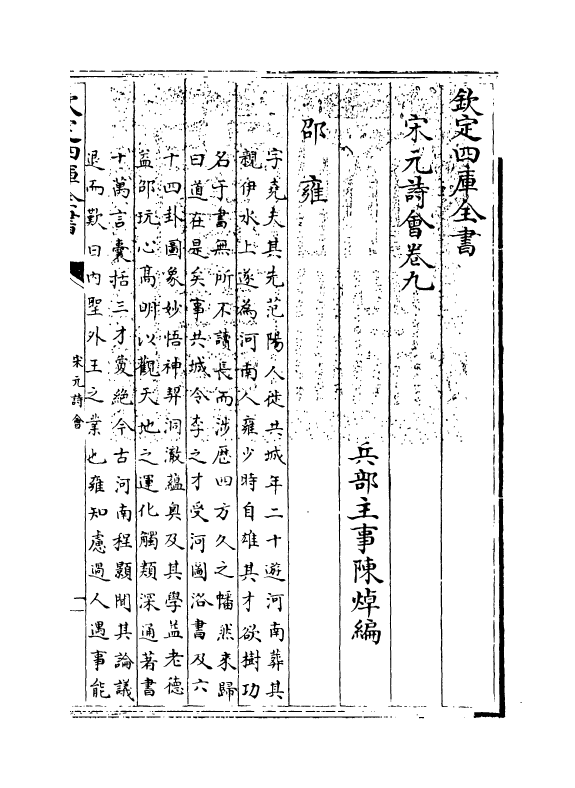 欽定四庫全書
宋元詩會卷九
兵部主事陳焯編
邵雍
字堯夫其先范陽人徙共城年二十遊河南葬其
親伊水上遂為河南人雍少時自雄其才欲樹功
名于書無所不讀長而涉歴四方久之幡然来歸
曰道在是矣事共城令李之才受河圖洛書及六
十四卦圖象妙悟神契洞澈藴奥及其學益老德
益邵玩心髙明以觀天地之運化觸類深通著書
十萬言囊括三才夐絶今古河南程顥聞其論議
退而歎曰内聖外王之業也雍知慮過人遇事能
欽定四庫全書
宋元詩會
一